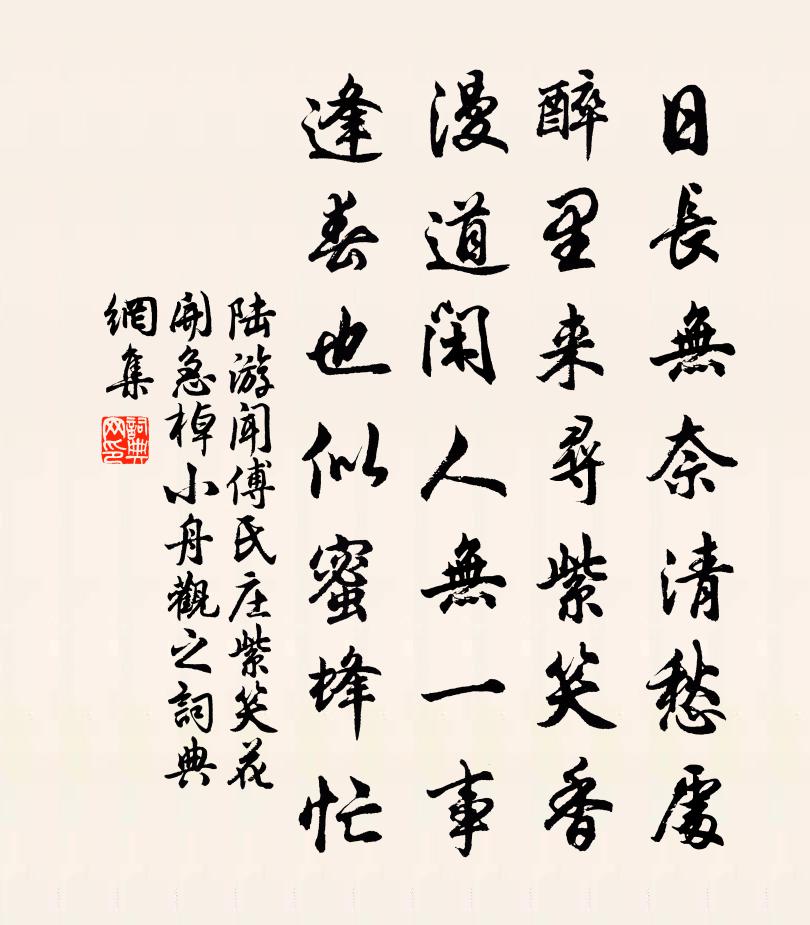 日長無奈清愁處
醉里来尋紫笑香
漫道閑人無一事
逢春也似蜜蜂忙
陆游闻傅氏庄紫笑花
開急棹小舟觀之詞典
網集
詞典
网印